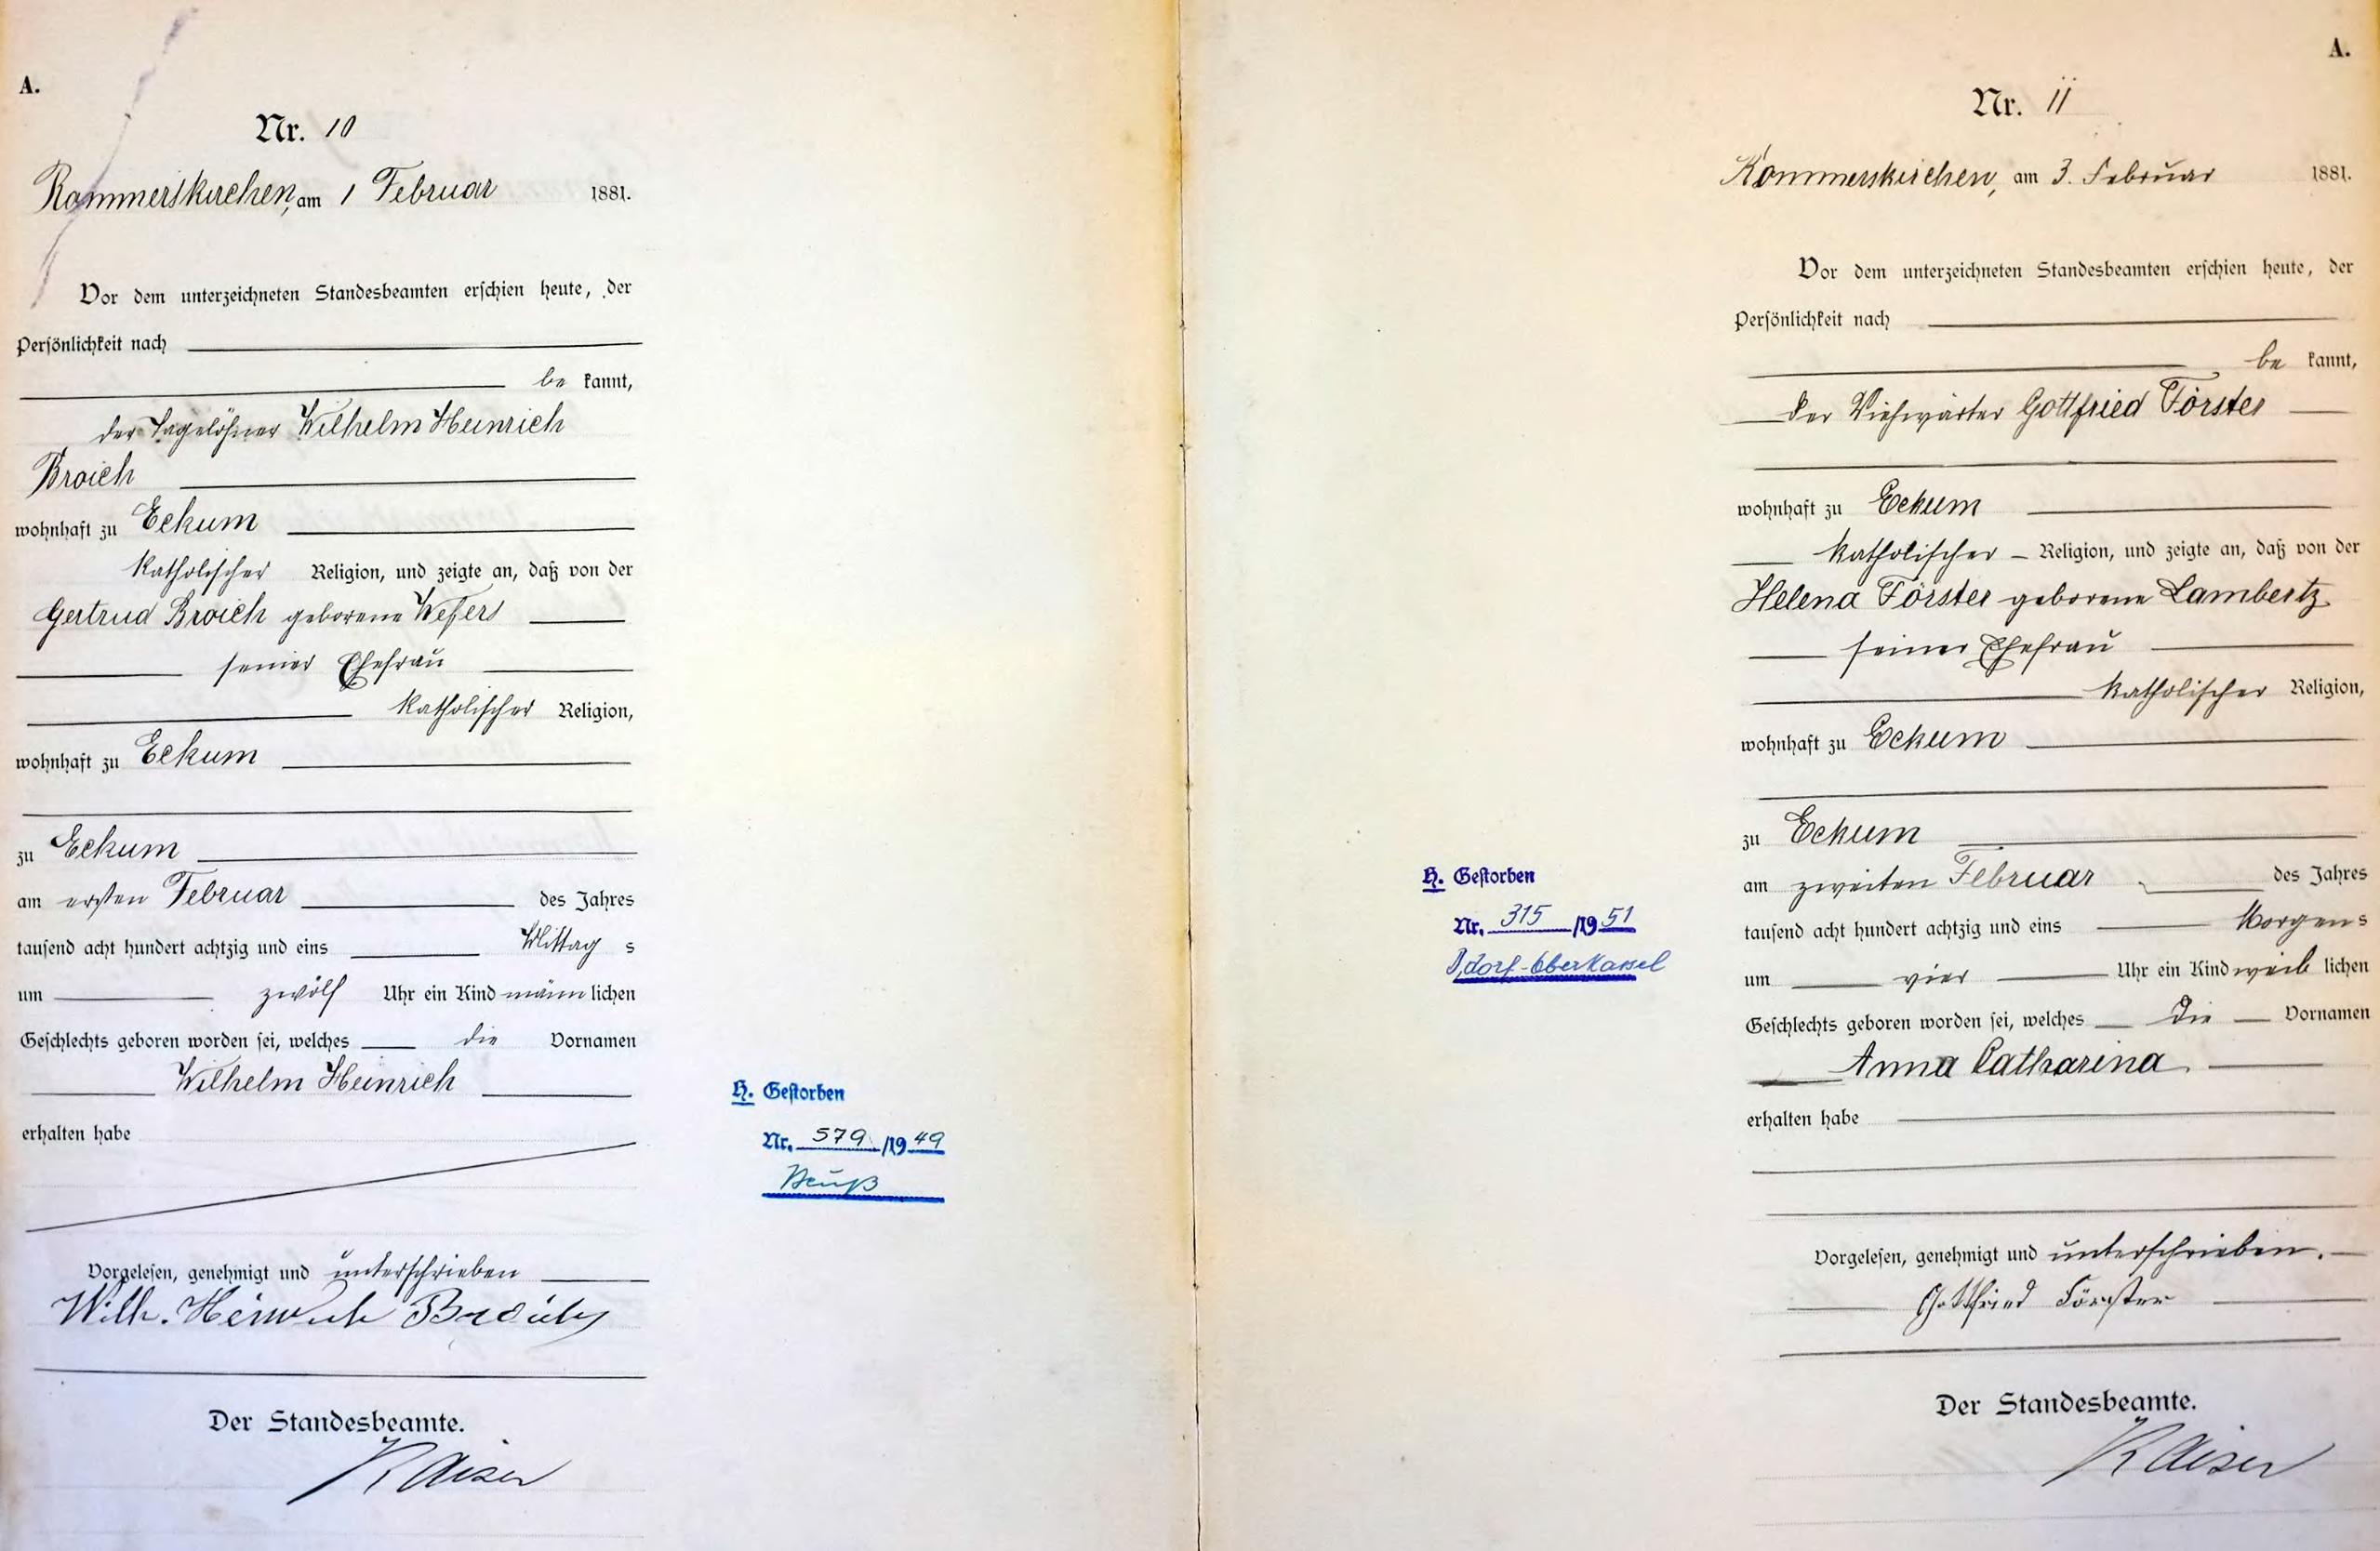 A.
Nr. 10
Rommerskirchen, am 1 Februar 1881.
Vor dem unterzeichneten Standesbeamten erschien heute, der
Persönlichkeit nach
be kannt,
der Tagelöhner Wilhelm Heinrich
Broich
wohnhaft zu Eckum
katholischer Religion, und zeigte an, daß von der
Gertrud Broich geborene Wefers
seiner Ehefrau
katholischer Religion,
wohnhaft zu Eckum
zu Eckum
am ersten Februar des Jahres
tausend acht hundert achtzig und eins Mittag s
um zwölf Uhr ein Kind männ lichen
Geschlechts geboren worden sei, welches die Vornamen
Wilhelm Heinrich
erhalten habe
Vorgelesen, genehmigt und unterschrieben
Wilh. Heinrich Broich
Der Standesbeamte.
Kaiser
H. Gestorben
Nr. 579 /1949
Neuß
A.
Nr. 11
Rommerskirchen, am 3. Februar 1881.
Vor dem unterzeichneten Standesbeamten erschien heute, der
Persönlichkeit nach
be kannt,
der Viehwärter Gottfried Förster
wohnhaft zu Eckum
katholischer Religion, und zeigte an, daß von der
Helena Förster geborene Lambertz
seiner Ehefrau
katholischer Religion,
wohnhaft zu Eckum
zu Eckum
am zweiten Februar des Jahres
tausend acht hundert achtzig und eins Morgens
um vier Uhr ein Kind weib lichen
Geschlechts geboren worden sei, welches die Vornamen
Anna Catharina
erhalten habe
Vorgelesen, genehmigt und unterschrieben.
Gottfried Förster
Der Standesbeamte.
Kaiser
H. Gestorben
Nr. 315 /1951
Ddorf-Oberkassel